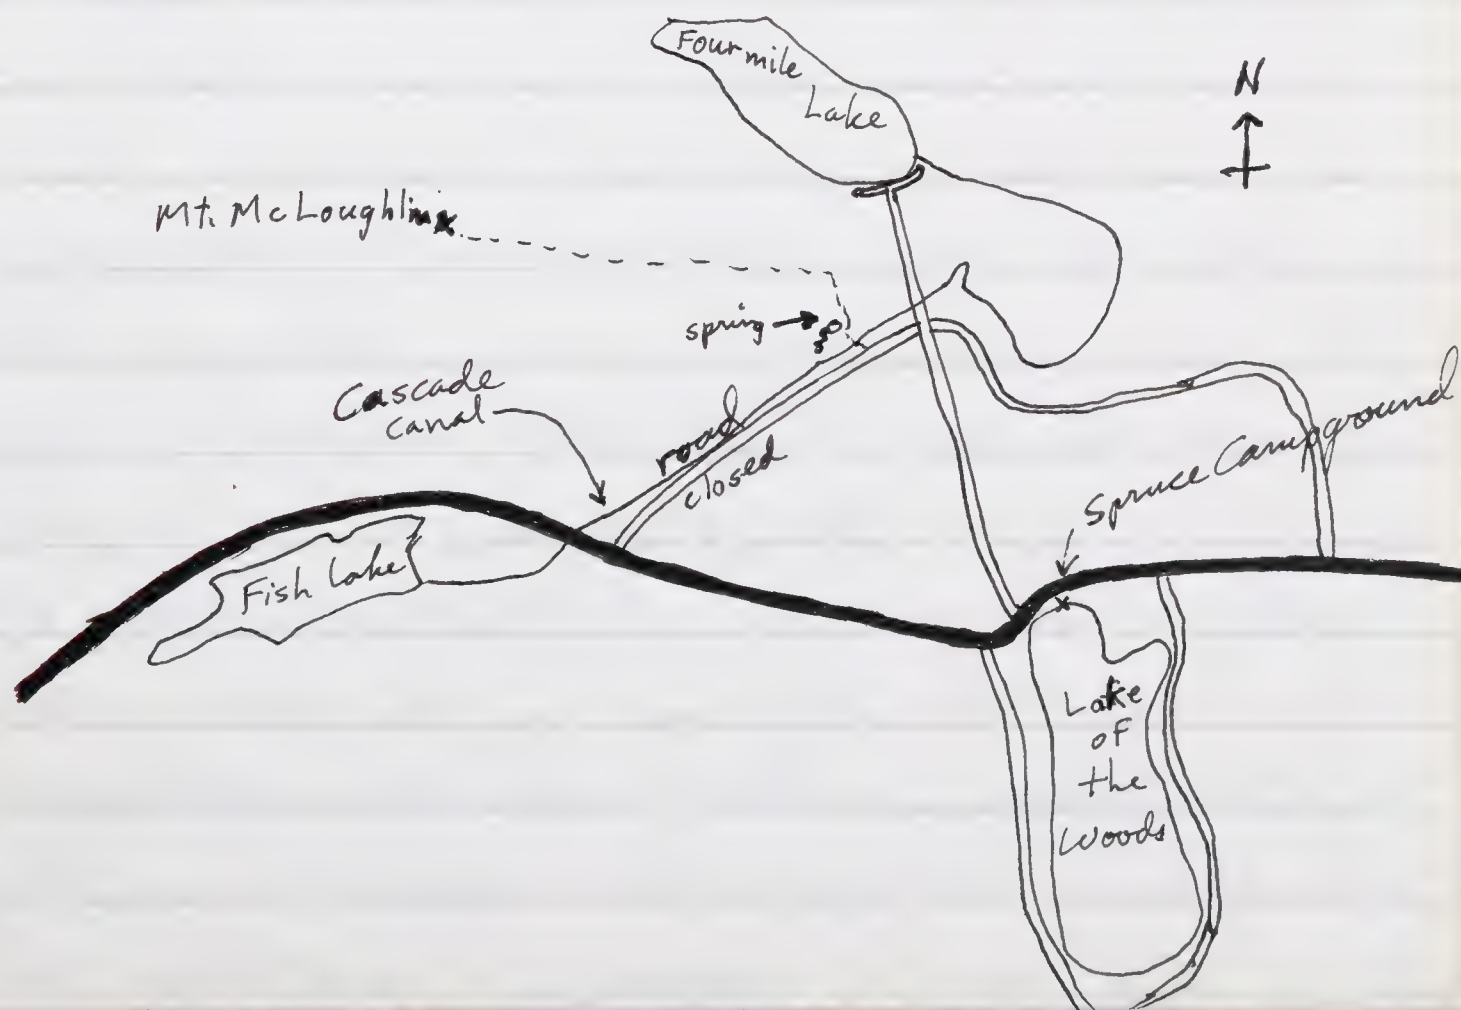 Fourmile
Lake
N
Mt. McLoughlin
spring
Cascade
canal
road
closed
Spruce Campground
Fish Lake
Lake
of
the
Woods